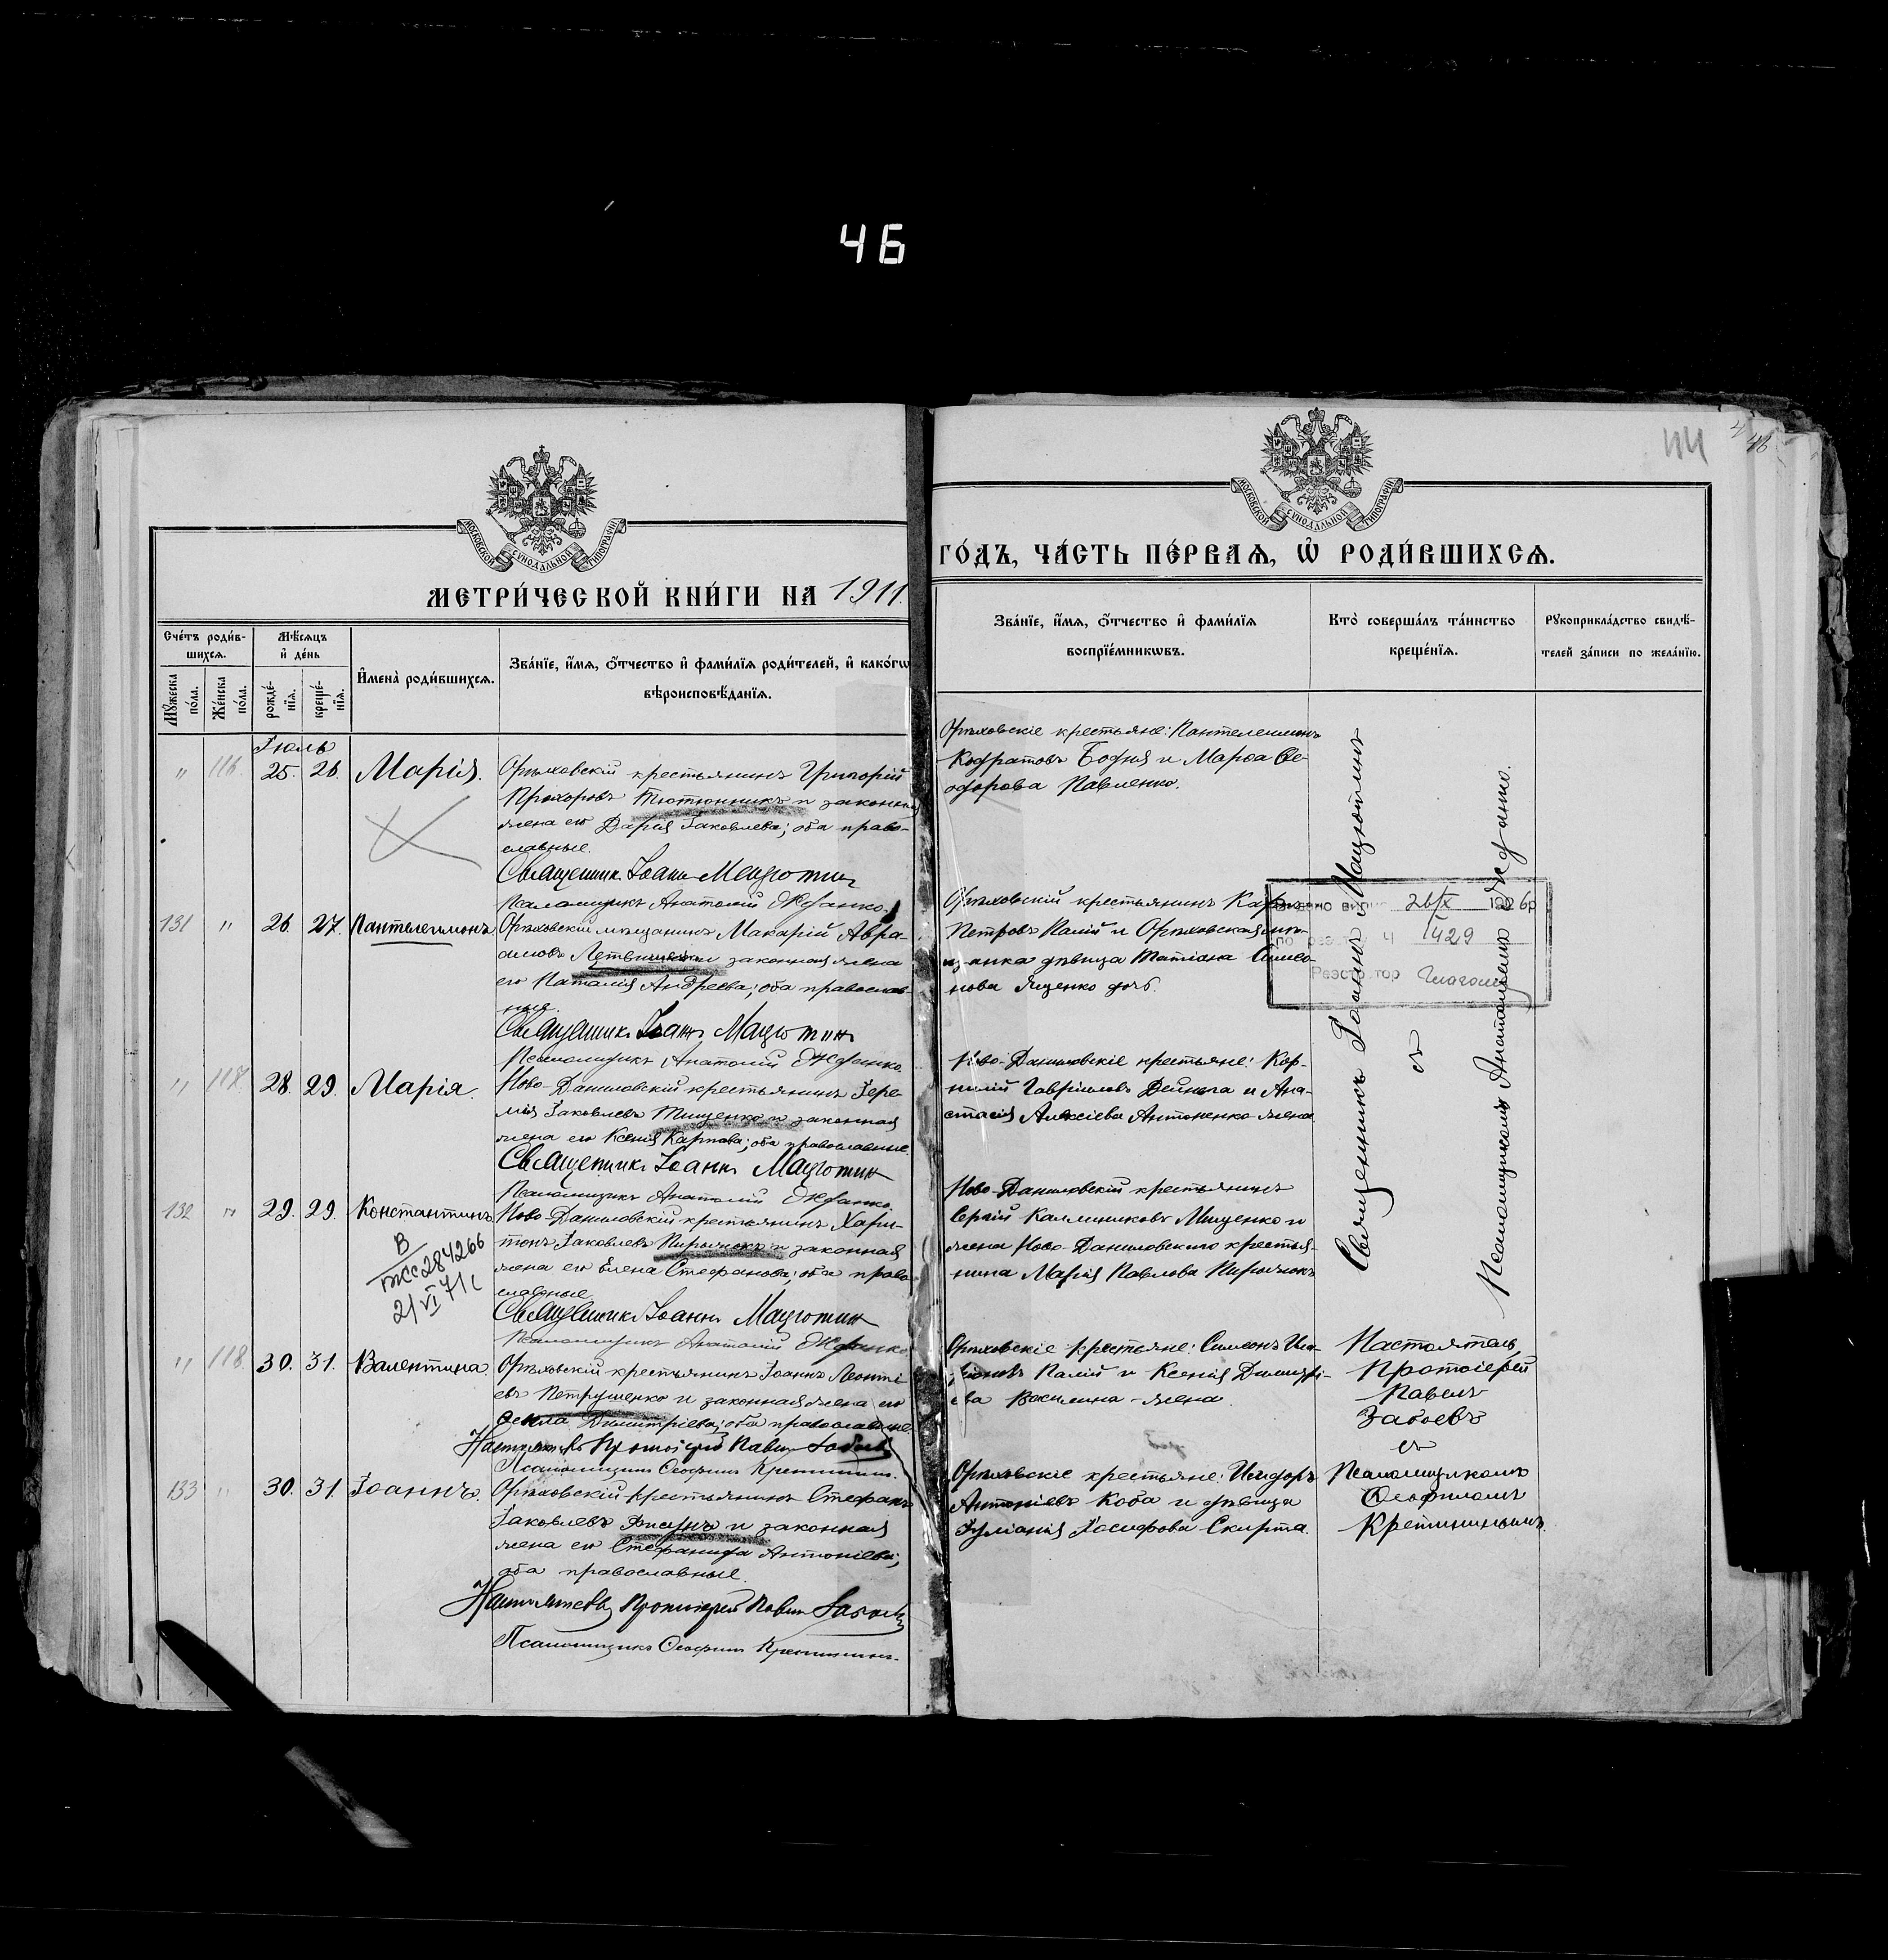 46
44
46
МОСКОВСКОЙ СѴНОДАЛЬНОЙ ТИПОГРАФІИ
МОСКОВСКОЙ СѴНОДАЛЬНОЙ ТИПОГРАФІИ
МЕТРИ́ЧЕСКОЙ КНИ́ГИ НА 1911.
ГО́ДЪ, ЧА́СТЬ ПЕ́РВАЯ, Ѡ҆ РОДИ́ВШИХСЯ.
Сче́тъ роди́в-
шихся.
Мѣ́сяцъ
и҆ де́нь
Му́жеска
по́ла.
Же́нска
по́ла.
рожде́-
нїя.
креще́-
нїя.
И҆мена̀ роди́вшихся.
Зва́нїе, и҆́мя, ѻ҆́тчество и҆ фами́лїя роди́телей, и҆ како́гѡ
вѣроисповѣ́данїя.
Зва́нїе, и҆́мя, ѻ҆́тчество и҆ фами́лїя
воспрїе́мникѡвъ.
Кто̀ соверша́лъ та́инство
креще́нїя.
Рꙋкоприкла́дство свидѣ́-
телей за́писи по жела́нїю.
Іюль
" 116. 25. 26. Марія.
Орѣховскій крестьянинъ Григорій
Прохоровъ Тютюнникъ и законная
жена его Дарія Іаковлева; оба право-
славные.
Священник Іоанн Мацютин
Псаломщикъ Анатолій Жданко.
Орѣховскіе крестьяне: Пантелеимонъ
Кодратовъ Бодня и Марѳа Ѳе-
одорова Павленко.
131 " 26. 27. Пантелеимонъ
Орѣховскій мѣщанинъ Макарій Авра-
амовъ и законная жена
его Наталія Андреева; оба православ-
ные.
Священник Іоанн Мацютин
Псаломщикъ Анатолій Жданко.
Орѣховскій крестьянинъ
Петровъ Палій и Орѣховская мѣ-
щанка дѣвица Татіана Симео-
нова Яценко дочь.
26/IX 1926р
Ч 1429
Реэстратор
" 117. 28. 29. Марія.
Ново-Даниловскій крестьянинъ Іере-
мія Іаковлевъ Тищенко и законная
жена его Ксенія Карпова; оба православные.
Священник Іоанн Мацютин
Псаломщикъ Анатолій Жданко.
Ново-Даниловскіе крестьяне: Кор-
нилій Гавріиловъ Дейнега и Ана-
стасія Алексіева Антоненко жена
132 " 29. 29. Константинъ
В
284266
2/VI 71
Ново-Даниловскій крестьянинъ Хари-
тонъ Іаковлевъ Пирожокъ и законная
жена его Елена Стефанова; оба право-
славные.
Священник Іоанн Мацютин
Псаломщикъ Анатолій Жданко.
Ново-Даниловскій крестьянинъ
Сергій Каллиниковъ Мищенко и
жена Ново-Даниловскаго крестья-
нина Марія Павлова Пирожокъ
Священникъ Іоаннъ Мацютинъ
съ
Псаломщикомъ Анатоліемъ Жданко.
" 118. 30. 31. Валентина
Орѣховскій крестьянинъ Іоаннъ Леонті-
евъ Петрушенко и законная жена его
Ѳекла Димитріева; оба православные.
Настоятель Протоіерей Павелъ Забаевъ
Псаломщикъ Ѳеофилъ Кретининъ.
Орѣховскіе крестьяне: Симеонъ
Палій и Ксенія Димитрі-
ева Василина-жена.
Настоятель
Протоіерей
Павелъ
Забаевъ
съ
Псаломщикомъ
Ѳеофиломъ
Кретининымъ.
133 " 30. 31. Іоаннъ.
Орѣховскій крестьянинъ Стефанъ
Іаковлевъ Фисунъ и законная
жена его Стефанида Антоніева;
оба православные.
Настоятель Протоіерей Павелъ Забаевъ
Псаломщикъ Ѳеофилъ Кретининъ.
Орѣховскіе крестьяне: Исидоръ
Антоніевъ Коба и дѣвица
Іуліанія Іосифова Скирта.